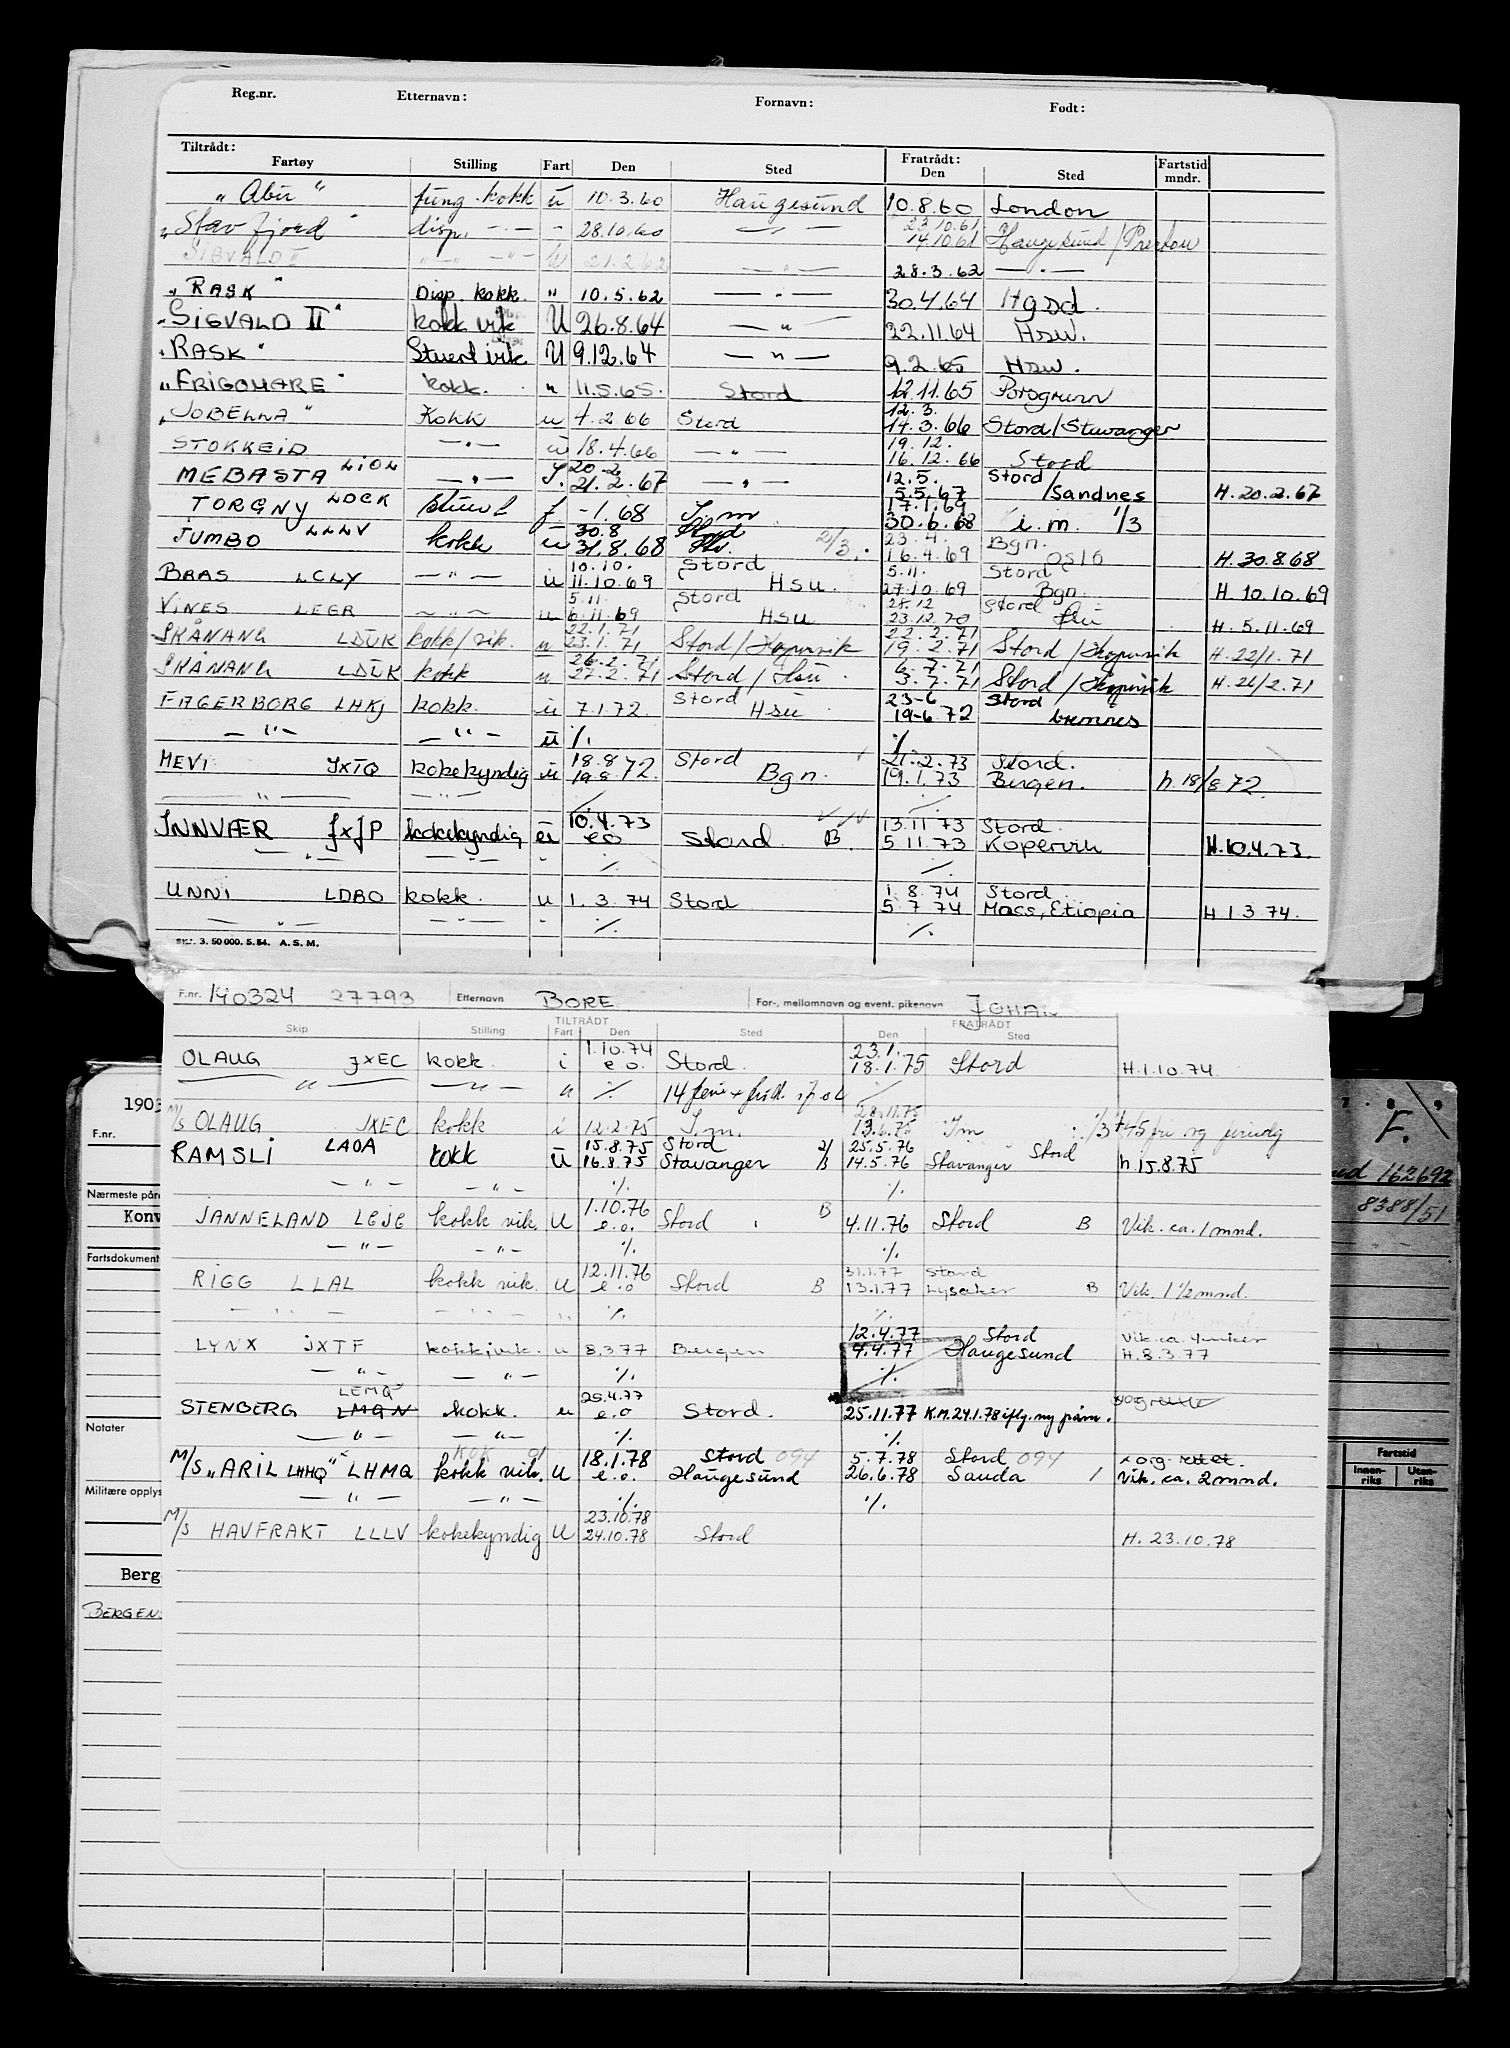 Reg.nr. Etternavn: Fornavn: Født:
Tiltrådt: Fratrådt:
Fartøy Stilling Fart Den Sted Den Sted Fartstid mndr.
"Abu" fung. kokk u 10.3.60 Haugesund 10.8.60 London
23.10.61
"Stavfjord" disp. — " — " 28.10.60 — " — 14.10.61 Haugesund /
SIGVALD II — " — " — u 21.2.62 — " — 28.3.62 — " —
"RASK" Disp. kokk. " 10.5.62 — " — 30.4.64 Hgsd.
"SIGVALD II" kokk vik U 26.8.64 — " — 22.11.64 Hsu.
"RASK" Stuert vik U 9.12.64 — " — 9.2.65 Hsu.
"FRIGOMARE" kokk. " 11.5.65. Stord 12.11.65 Porsgrunn
12.3.
"JOBELNA" Kokk u 4.2.66 Stord 14.3.66 Stord/Stavanger
19.12.
STOKKEID — " — u 18.4.66 — " — 16.12.66 Stord
20.2 12.5. Stord
MEBASTA LIOL — " — 21.2.67 — " — 5.5.67 /Sandnes H. 20.2.67
17.1.69
TORGNY LDCK stuert f -1.68 I.m 30.6.68 i.m. 1/3
30.8 23.4. Bgn.
JUMBO LLLV kokk u 31.8.68 2/3. 16.4.69 OSLO H. 30.8.68
10.10. Stord 5.11. Stord
BRAS LCLY — " — u 11.10.69 Hsu. 27.10.69 Bgn. H. 10.10.69
5.11 Stord 28.12 Stord
VINES LEGR — " — u 6.11.69 Hsu 23.12.70 Hsu H. 5.11.69
22.1.71 22.2.71
SKÅNANG LDUK kokk/vik. u 23.1.71 Stord/Kopervik 19.2.71 Stord/Kopervik H. 22/1.71
26.2.71 6.7.71
SKÅNANG LDUK kokk u 27.2.71 Stord/Hsu. 3.7.71 Stord/Kopervik H. 26/2.71
Stord 23-6 Stord
FAGERBORG LHKJ kokk. u 7.1.72. Hsu 19-6.72 bremnes
— " — — " — u %. %.
18.8 Stord 21.2.73 Stord.
MEVI JXTQ kokekyndig u 19.8.72. Bgn. 19.1.73 Bergen. h. 18/8 72.
— " — — " — %. %.
10.4.73 13.11.73 Stord.
INNVÆR JXJP kokekyndig u eo Stord. B. 5.11.73 Kopervik H. 10.4.73.
— " — — " — " %. %.
1.8.74 Stord.
UNNI LDBO kokk. u 1.3.74 Stord 5.7.74 Mass, Etiopia H 1.3.74.
— " — — " — " %. %.
3. 50 000. 5. 54. A. S. M.
F.nr. 140324 27793 Etternavn BORE For-, mellomnavn og event. pikenavn JOHAN
TILTRÅDT FRATRÅDT
Skip Stilling Fart Den Sted Den Sted
1.10.74 23.1.
OLAUG JXEC kokk. i e o. Stord. 18.1.75 Stord H.1.10.74.
— " — — " — " %. 14 %.
20.11.75
M/S OLAUG JXEC kokk i 12.2.75 I.m. 13.6.75 Im
15.8.75 Stord 2/ 25.5.76 Stord
RAMSLI LAOA kokk U 16.8.75 Stavanger 3 14.5.76 Stavanger h.15.8.75
— " — — " — %. %.
1.10.76 B
JANNELAND LEJE kokk vik. U e.o. Stord 4.11.76 Stord B Vik. ca. 1 mnd.
— " — — " — %. %.
12.11.76 31.1.77 Stord
RIGG LLAL kokk vik. U e.o Stord B 13.1.77 Lysaker B Vik. 1 1/2 mnd.
— " — — " — " %. %.
12.4.77 Stord Vik. ca. 4 uker
LYNX JXTF kokk/vik. u 8.3.77 Bergen 4.4.77 Haugesund H. 8.3.77
— " — — " — %. %.
LEMQ 25.4.77
STENBERG LMGN kokk. u e.o Stord. 25.11.77 K.M. 24.1.78 iflg. ny påm.
— " — — " — %. %.
18.1.78 Stord 094 5.7.78 Stord 094
M/S "ARIL LHMQ" LHMQ kokk vik. U e.o. Haugesund 26.6.78 Sauda / Vik. ca. 2 mnd.
— " — — " — %. %.
23.10.78
M/S HAVFRAKT LLLV kokekyndig U 24.10.78 Stord H. 23.10.78
1903
F.nr.
Nærmeste påre
Konv
Fartsdokument
Notater
Militære opplys
Berg
BERGENS
F.
162692
8388/51
Fartstid
Innenriks Utenriks